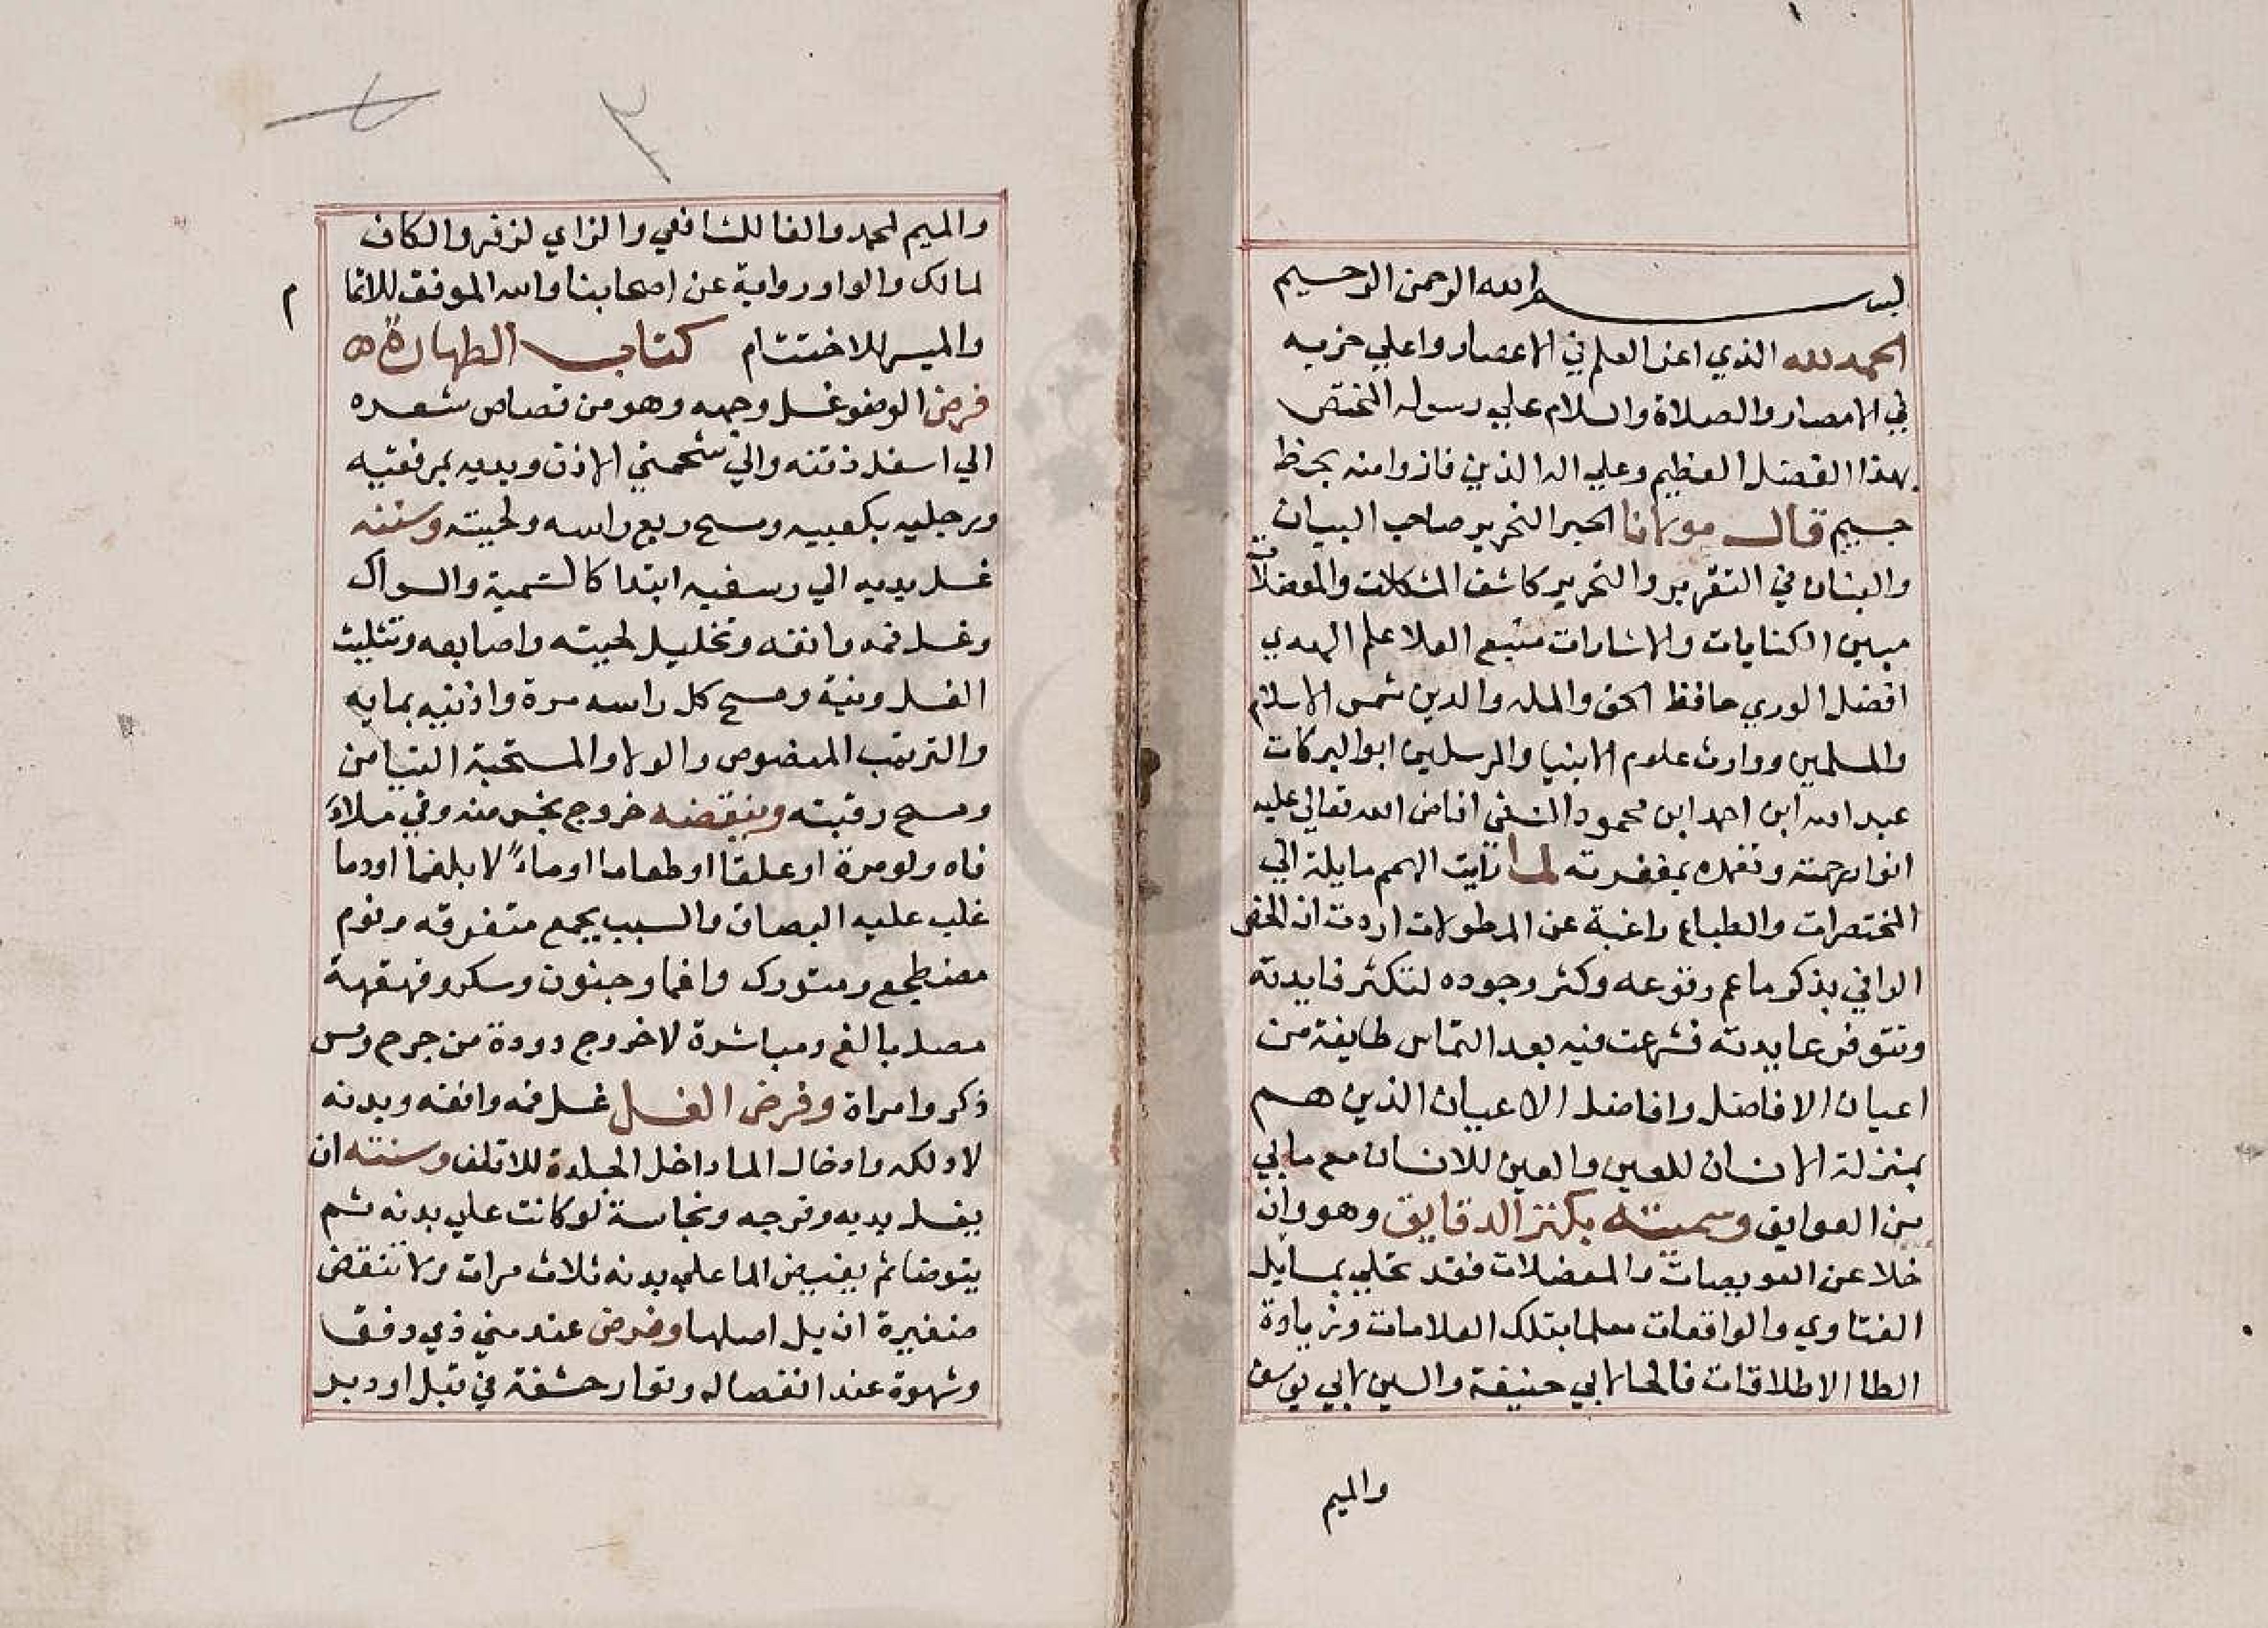 بسم الله الرحمن الرحيم
الحمد لله الذي اعز العلم في الاعصار واعلي حزبه
في الامصار والصلاة والسلام علي رسوله المختص
بهذا الفضل العظيم وعلي اله الذين فازوا منه بحظ
جسيم قال مولانا الحبر النحرير صاحب البيان
والبنان في التقرير والتحرير كاشف المشكلات والمعضلات
مبين الكنايات والاشارات منبع العلا علم الهدي
افضل الوري حافظ الحق والمله والدين شمس الاسلام
والمسلمين ووارث علوم الانبيا والمرسلين ابوالبركات
عبد الله ابن احمد ابن محمود النسفي افاض الله تعالي عليه
انوار رحمته وتغمده بمغفرته لما رايت الهمم مايلة الي
المختصرات والطباع راغبة عن المطولات اردت ان الخص
الوافي بذكر ما عم وقوعه وكثر وجوده لتكثر فايدته
وتتوفر عايدته فشرعت فيه بعد التماس طايفة من
اعيان الافاضل وافاضل الاعيان الذين هم
بمنزلة الانسان للعين والعين للانسان مع ما بي
من العوايق وسميته بكنز الدقايق وهو وان
خلا عن العويصات والمعضلات فقد تحلي بمسايل
الفتاوي والواقعات معلما بتلك العلامات وزيادة
الطا الاطلاقات فالحا لابي حنيفة والسين لابي يوسف
والميم
٣
والميم لمحمد والفا للشافعي والزاي لزفر والكاف
لمالك والواو رواية عن اصحابنا والله الموفق للاتما
م
والميسر للاختتام كتاب الطهارة ه
فرض الوضو غسل وجهه وهو من قصاص شعره
الي اسفل ذقنه والي شحمتي الاذن ويديه بمرفقيه
ورجليه بكعبيه ومسح ربع راسه ولحيته وسننه
غسل يديه الي رسغيه ابتدا كالتسمية والسواك
وغسل فمه وانفه وتخليل لحيته واصابعه وتثليث
الغسل ونية ومسح كل راسه مرة واذنيه بمايه
والترتيب المنصوص والولا والمستحبة التيامن
ومسح رقبته وينقضه خروج نجس منه وقي ملاء
فاه ولو مرة او علقا او طعاما او ماءً لا بلغما او دما
غلب عليه البصاق والسبب يجمع متفرقه ونوم
مضطجع ومتورك واغما وجنون وسكر وقهقهة
مصل بالغ ومباشرة لا خروج دودة من جرح ومس
ذكر وامراة وفرض الغسل غسل فمه وانفه وبدنه
لا دلكه وادخال الما داخل الجلدة للاقلف وسنته ان
يغسل يديه وفرجه ونجاسة لو كانت علي بدنه ثم
يتوضا ثم يفيض الما علي بدنه ثلاث مرات ولا تنقض
ضفيرة ان بل اصلها وفرض عند مني ذي دفق
وشهوة عند انفصاله وتوار حشفة في قبل او دبر